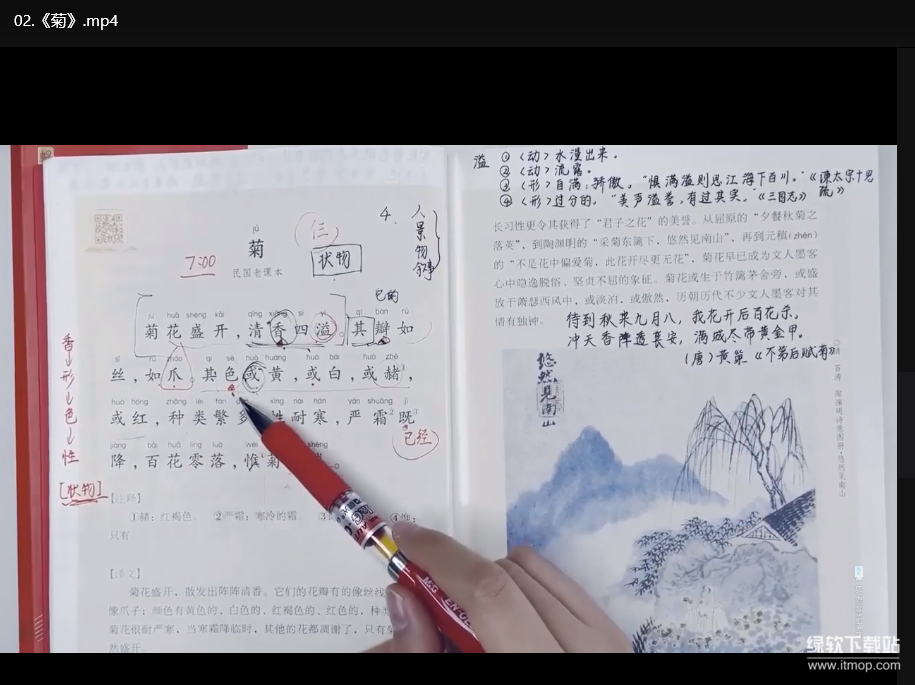 02.《菊》.mp4
溢 ①〈动〉水漫出来。
②〈动〉流露。
③〈形〉自满;骄傲。"惧满溢则思江海下百川。"《谏太宗十思疏》
④〈形〉过分的。"美声溢誉,有过其实。"《三国志》
长习性更令其获得了"君子之花"的美誉。从屈原的"夕餐秋菊之
落英",到陶渊明的"采菊东篱下,悠然见南山",再到元稹(zhěn)
的"不是花中偏爱菊,此花开尽更无花",菊花早已成为文人墨客
心中隐逸脱俗、坚贞不屈的象征。菊花或生于竹篱茅舍旁,或盛
放于萧瑟西风中,或淡泊,或傲然,历朝历代不少文人墨客对其
情有独钟。
待到秋来九月八,我花开后百花杀。
冲天香阵透长安,满城尽带黄金甲。
(唐)黄巢《不第后赋菊》
悠然见南山
4. 人
景
物
叙事
jú
菊
状物
7:00
民国老课本
它的
jú huā shèng kāi
菊花盛开,清香四溢,其瓣如
丝,如爪。其色或黄,或白,或赭,
或红,种类繁多。性耐寒,严霜既
已经
降,百花零落,惟菊
香→形→色→性
[状物]
【注释】
①赭:红褐色。 ②严霜:寒冷的霜。
④惟:
只有
【译文】
菊花盛开,散发出阵阵清香。它们的花瓣有的像丝线
像爪子;颜色有黄色的、白色的、红褐色的、红色的,种
菊花很耐严寒,当寒霜降临时,其他的花都凋谢了,只有
然盛开。
绿软下载站
www.itmop.com